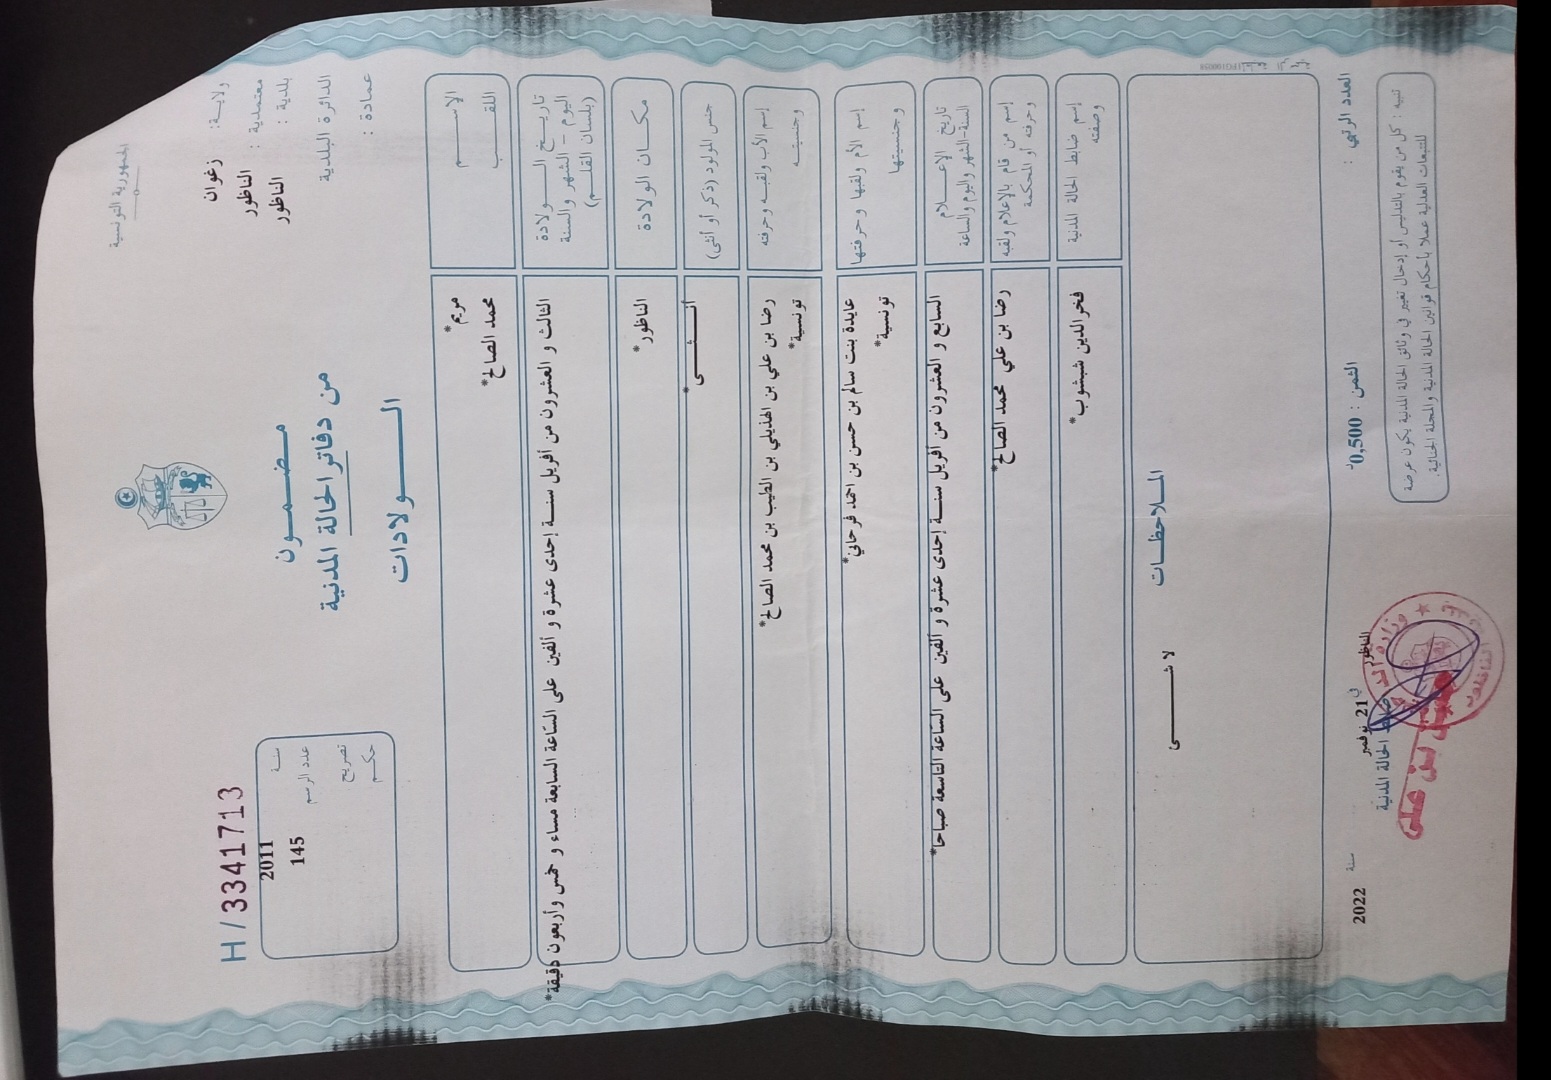 الجمهورية التونسية
ولاية: زغوان
معتمدية : الناظور
بلدية : الناظور
الدائرة البلدية
عمادة :
مضمون
من دفاتر الحالة المدنية
الولادات
H/3341713
سنة 2011
عدد الرسم 145
تصريح
حكم
الاسم مريم*
اللقب محمد الصالح*
تاريخ الولادة
اليوم - الشهر والسنة
(بلسان القلم)
الثالث و العشرون من أفريل سنة إحدى عشرة و ألفين على السّاعة السابعة مساء و خمس وأربعون دقيقة*
مكان الولادة الناظور*
جنس المولود (ذكر أو أنثى) أنثى*
إسم الأب ولقبه وحرفته رضا بن علي بن الهذيلي بن الطيب بن محمد الصالح*
وجنسيته تونسية*
إسم الأم ولقبها وحرفتها عايدة بنت سالم بن حسن بن احمد فرحاني*
وجنسيتها تونسية*
تاريخ الإعلام
السنة-الشهر واليوم والساعة
السابع و العشرون من أفريل سنة إحدى عشرة و ألفين على السّاعة التاسعة صباحا*
إسم من قام بالإعلام ولقبه
وحرفته أو المحكمة
رضا بن علي محمد الصالح*
إسم ضابط الحالة المدنية
وصفته
فخر الدين شبشوب*
الملاحظات
لا شئ
العدد الرتبي :
الثمن : 0,500د
الناظور
في 21 نوفمبر
سنة 2022
ضابط الحالة المدنية
بن علي
تنبيه : كل من يقوم بالتدليس أو إدخال تغيير في وثائق الحالة المدنية يكون عرضة
للتتبعات العدلية عملا بأحكام قوانين الحالة المدنية والمجلة الجنائية.